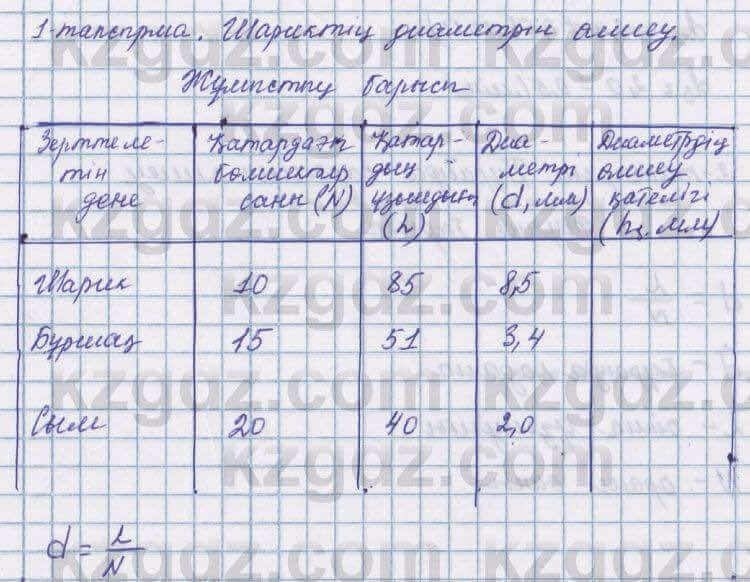 1-тапсырма. Шариктің диаметрін өлшеу.
Жұмыстың барысы
Зерттеле-
тін
дене
Қатардағы
бөлшектер
саны (N)
Қатар-
дың
ұзындығы
(L)
Диа-
метрі
(d, мм)
Диаметрдің
өлшеу
қателігі
(hц, мм)
Шарик 10 85 8,5
Бұршақ 15 51 3,4
Сым 20 40 2,0
d = L/N
kzgdz.com